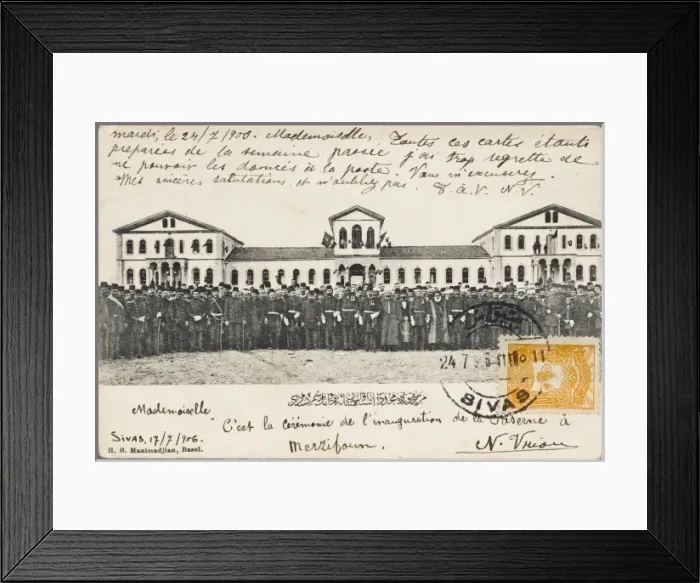 mardi, le 24/7/906. Mademoiselle, Toutes ces cartes étants
preparées de la semaine passée j'ai trop regretté de
ne pouvoir les donnés à la poste. Vous m'excuserez.
Mes sincères salutations, et n'oubliez pas. T.à.V. N.V.
24 7 9 6 11
SIVAS
Mademoiselle
C'est la cérémonie de l'inauguration de la Caserne à
Sivas, 17/7/906.
Merzifoun.
N. Vrion
H. B. Manimadjian, Basel.